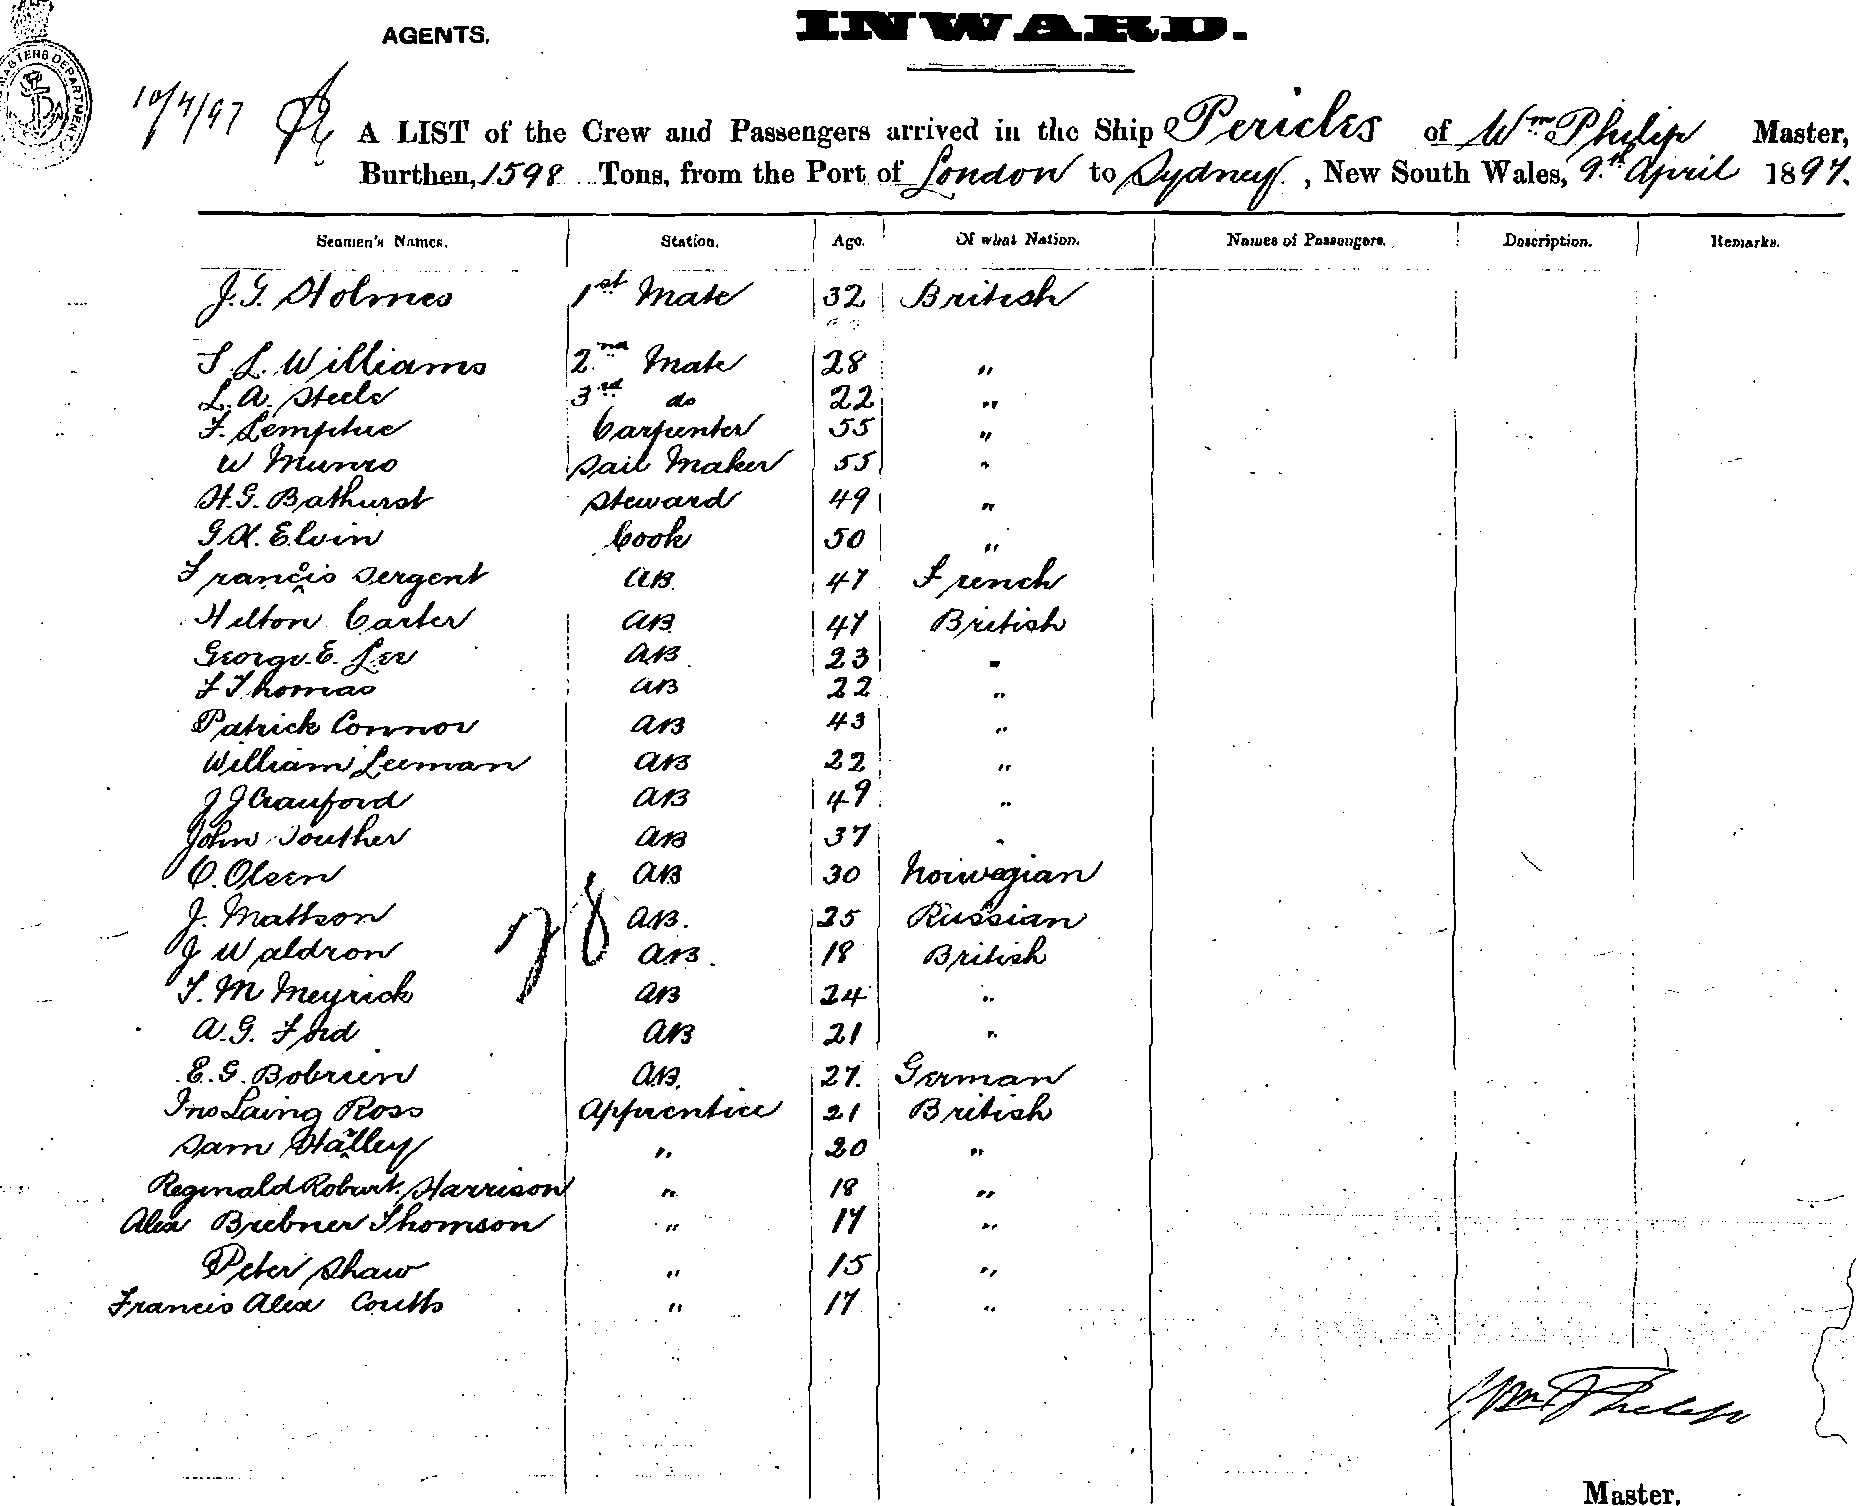 AGENTS.
INWARD.
MASTERS DEPARTMENT
10/4/97
A LIST of the Crew and Passengers arrived in the Ship Pericles of Wm Philip Master,
Burthen, 1598 Tons, from the Port of London to Sydney, New South Wales, 9th April 1897.
Seamen's Names. Station. Age. Of what Nation. Names of Passengers. Description. Remarks.
J. G. Holmes 1st Mate 32 British
S L. Williams 2nd Mate 28 "
L. A. Steele 3rd do 22 "
F. Carpenter 55 "
W Munro Sail Maker 55 "
H. G. Bathurst Steward 49 "
G H. Elvin Cook 50 "
Francis Sergent AB. 47 French
Hilton Carter AB. 47 British
George E. Lee AB. 23 "
F Thomas AB 22 "
Patrick Connor AB 43 "
William Leeman AB 22 "
J J Crauford AB 49 "
John Souther AB 37 "
C. Olsen AB 30 Norwegian
J. Mattson AB. 25 Russian
J Waldron AB. 18 British
28
T. M Meyrick AB 24 "
A. G. Ford AB 21 "
E. G. Bobrien AB. 27. German
Jno Laing Ross Apprentice 21 British
Sam Halley " 20 "
Reginald Robert Harrison " 18 "
Alex Brebner Thomson " 17 "
Peter Shaw " 15 "
Francis Alex Coutts " 17 "
Wm Philip
Master.